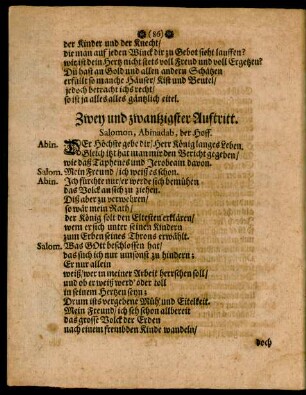 (86)
der Kinder und der Knecht/
die man auf jeden Winck dir zu Gebot sieht lauffen?
wie ist dein Hertz nicht stets voll Freud und voll Ergetzen?
Du hast an Gold und allen andern Schätzen
erfüllt so manche Häuser/ Kist und Beutel/
jedoch betracht ichs recht/
so ist ja alles alles gäntzlich eitel.
Zwey und zwantzigster Auftritt.
Salomon, Abinadab, der Hoff.
Abin. DEr Höchste gebe dir/ Herr König langes Leben.
Gleich itzt hat man mir den Bericht gegeben/
wie daß Taphens und Jerobeam davon.
Salom. Mein Freund/ ich weiß es schon.
Abin. Ich fürchte nur/ er werde sich bemühen
das Volck an sich zu ziehen.
Diß aber zu verwehren/
so wär mein Rath/
der König solt den Eltesten erklären/
wem er sich unter seinen Kindern
zum Erben seines Throns erwählt.
Salom. Was GOtt beschlossen hat/
das such ich nur umsonst zu hindern:
Er nur allein
weiß/ wer in meiner Arbeit herrschen soll/
und ob er weiß werd' oder toll
in seinem Hertzen seyn:
Drum ists vergebene Müh' und Eitelkeit.
Mein Freund/ ich seh schon allbereit
das grosse Volck der Erden
nach einem frembden Kinde wandeln/
doch